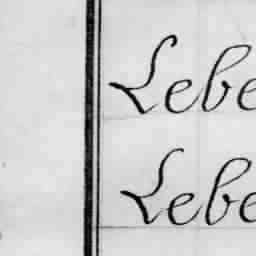 Lebe
Lebe